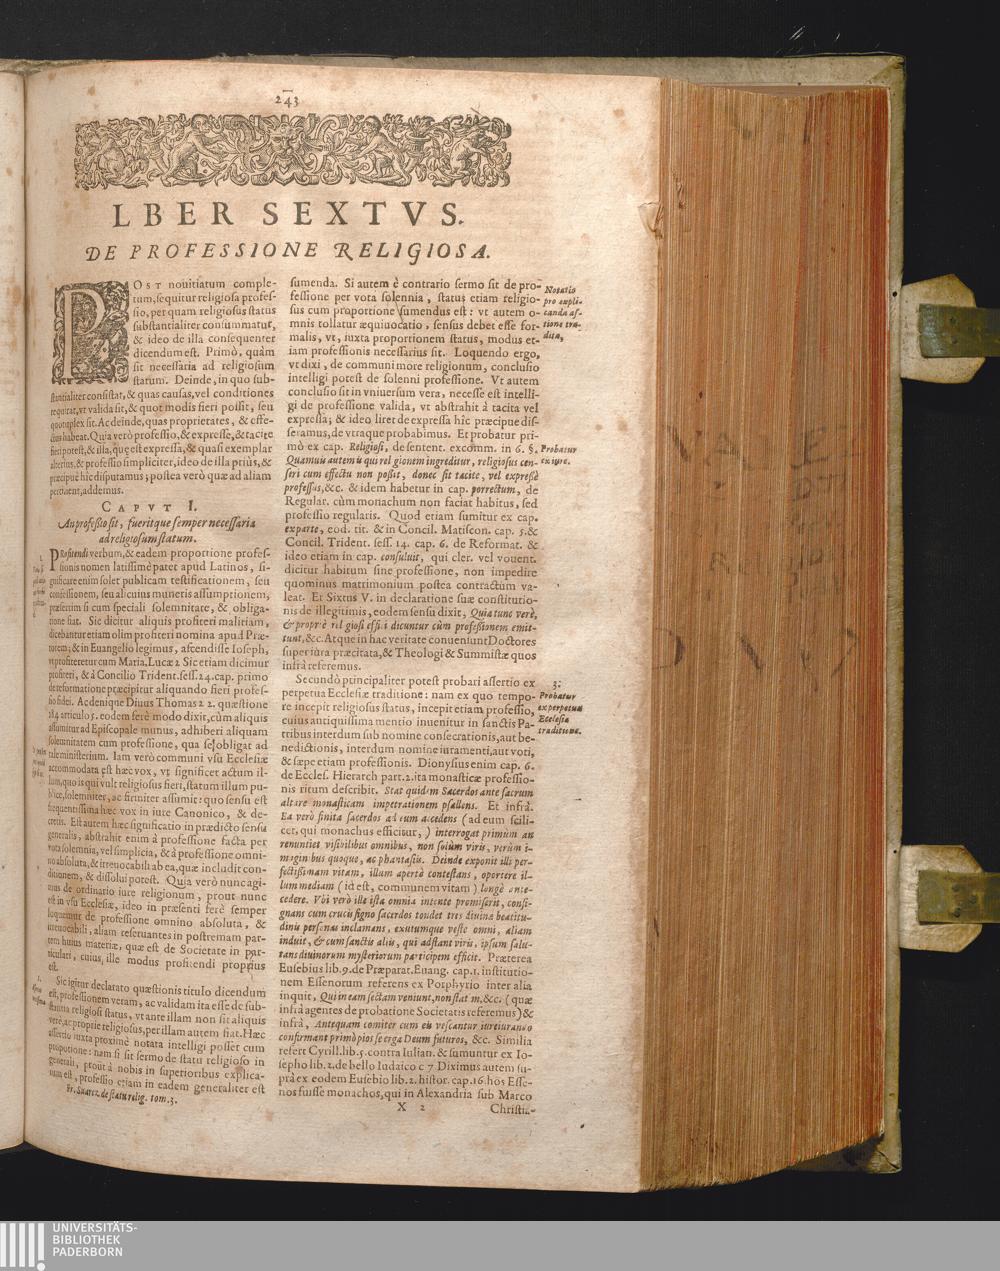 243
LBER SEXTVS.
DE PROFESSIONE RELIGIOSA.
POST nouitiatum comple-
tum, sequitur religiosa profes-
sio, per quam religiosus status
substantialiter consummatur,
& ideo de illa consequenter
dicendum est. Primò, quàm
sit necessaria ad religiosum
statum. Deinde, in quo sub-
stantialiter consistat, & quas causas, vel conditiones
requirat, vt valida sit, & quot modis fieri possit, seu
quotuplex sit. Ac deinde, quas proprietates, & effe-
ctus habeat. Quia verò professio, & expressè, & tacite
fieri potest, & illa, quę est expressa, & quasi exemplar
alterius, & professio simpliciter, ideo de illa priùs, &
præcipuè hic disputamus; postea verò quæ ad aliam
pertinent, addemus.
CAPVT I.
An professio sit, fueritque semper necessaria
ad religiosum statum.
1.
PRofitendi verbum, & eadem proportione profes-
sionis nomen latissimè patet apud Latinos, si-
gnificare enim solet publicam testificationem, seu
confessionem, seu alicuius muneris assumptionem,
præsertim si cum speciali solemnitate, & obliga-
tione fiat. Sic dicitur aliquis profiteri malitiam,
dicebantur etiam olim profiteri nomina apud Præ-
torem; & in Euangelio legimus, ascendisse Ioseph,
vt profiteretur cum Maria. Lucæ 2 Sic etiam dicimur
profiteri, & à Concilio Trident. sess. 24. cap. primo
de reformatione præcipitur aliquando fieri profes-
sio fidei. Ac denique Diuus Thomas 2 2. quæstione
184 articulo 5. eodem ferè modo dixit, cùm aliquis
assumitur ad Episcopale munus, adhiberi aliquam
solemnitatem cum professione, qua se obligat ad
tale ministerium. Iam verò communi vsu Ecclesiæ
accommodata est hæc vox, vt significet actum il-
lum, quo is qui vult religiosus fieri, statum illum pu-
blicè, solemniter, ac firmiter assumit: quo sensu est
frequentissima hæc vox in iure Canonico, & de-
cretis. Est autem hæc significatio in prædicto sensu
generalis, abstrahit enim à professione facta per
vota solemnia, vel simplicia, & à professione omni-
no absoluta, & irreuocabili ab ea, quæ includit con-
ditionem, & dissolui potest. Quia verò nunc agi-
mus de ordinario iure religionum, prout nunc
est in vsu Ecclesiæ, ideo in præsenti ferè semper
loquemur de professione omnino absoluta, &
irreuocabili, aliam reseruantes in postremam par-
tem huius materiæ, quæ est de Societate in par-
ticulari, cuius, ille modus profitendi proprius
est.
Sic igitur declarato quæstionis titulo dicendum
est, professionem veram, ac validam ita esse de sub-
stantia religiosi status, vt ante illam non sit aliquis
verè, ac propriè religiosus, per illam autem fiat. Hæc
assertio iuxta proximè notata intelligi posset cum
propotione: nam si sit sermo de statu religioso in
generali, prout à nobis in superioribus explica-
tum est, professio etiam in eadem generaliter est
Fr. Suarez. de statu relig. tom. 3.
sumenda. Si autem è contrario sermo sit de pro-
fessione per vota solennia, status etiam religio-
sus cum proportione sumendus est: vt autem o-
mnis tollatur æquiuocatio, sensus debet esse for-
malis, vt, iuxta proportionem status, modus et-
iam professionis necessarius sit. Loquendo ergo,
vt dixi, de communi more religionum, conclusio
intelligi potest de solenni professione. Vt autem
conclusio sit in vniuersum vera, necesse est intelli-
gi de professione valida, vt abstrahit à tacita vel
expressa; & ideo licet de expressa hîc præcipue dis-
seramus, de vtraque probabimus. Et probatur pri-
mò ex cap. Religiosi, de sentent. excomm. in 6. §.
Quamuis autem is qui religionem ingreditur, religiosus cen-
seri cum effectu non possit, donec sit tacite, vel expressè
professus, &c. & idem habetur in cap. porrectum, de
Regular. cùm monachum non faciat habitus, sed
professio regularis. Quod etiam sumitur ex cap.
ex parte, eod. tit. & in Concil. Matiscon. cap. 5. &
Concil. Trident. sess. 14. cap. 6. de Reformat. &
ideo etiam in cap. consuluit, qui cler. vel vouent.
dicitur habitum sine professione, non impedire
quominus matrimonium postea contractùm va-
leat. Et Sixtus V. in declaratione suæ constitutio-
nis de illegitimis, eodem sensu dixit, Quia tunc verè,
& propriè religiosi effici dicuntur cùm professionem emit-
tunt, &c. Atque in hac veritate conueniunt Doctores
superiùs præcitata, & Theologi & Summistæ quos
infrà referemus.
Secundò principaliter potest probari assertio ex
perpetua Ecclesiæ traditione: nam ex quo tempo-
re incepit religiosus status, incepit etiam professio,
cuius antiquissima mentio inuenitur in sanctis Pa-
tribus interdum sub nomine consecrationis, aut be-
nedictionis, interdum nomine iuramenti, aut voti,
& sæpe etiam professionis. Dionysius enim cap. 6.
de Eccles. Hierarch part. 2. ita monasticæ professio-
nis ritum describit. Stat quidem Sacerdos ante sacrum
altare monasticam impetrationem psallens. Et infrà.
Ea verò finita sacerdos ad eum accedens (ad eum scili-
cet, qui monachus efficitur,) interrogat primùm an
renuntiet visibilibus omnibus, non solùm viris, verùm i-
maginibus quoque, ac phantasiis. Deinde exponit illi per-
fectissimam vitam, illum apertè contestans, oportere il-
lum mediam (id est, communem vitam) longè ante-
cedere. Vbi verò ille ista omnia intente promiserit, consi-
gnans cum crucis signo sacerdos tondet tres diuinæ beatitu-
dinis personas inclamans, exutumque veste omni, aliam
induit, & cum sanctis aliis, qui adstant viris, ipsum salu-
tans diuinorum mysteriorum participem efficit. Præterea
Eusebius lib. 9. de Præparat. Euang. cap. 1. institutio-
nem Essenorum referens ex Porphyrio inter alia
inquit, Qui in eam sectam veniunt, non stat m, &c. (quæ
infrà agentes de probatione Societatis referemus) &
infrà, Antequam comiter cum eis vescantur iureiurando
confirmant primò pios se erga Deum futuros, &c. Similia
refert Cyrill. lib. 5. contra Iulian. & sumuntur ex Io-
sepho lib. 2. de bello Iudaico c 7 Diximus autem su-
prà ex eodem Eusebio lib. 2. histor. cap. 16. hos Esse-
nos fuisse monachos, qui in Alexandria sub Marco
X 2
Christi-
Notatio
pro expli-
canda as-
sertione tra-
dita,
Probatur
ex iure.
3.
Probatur
ex perpetua
Ecclesiæ
traditione.
UNIVERSITÄTS-
BIBLIOTHEK
PADERBORN